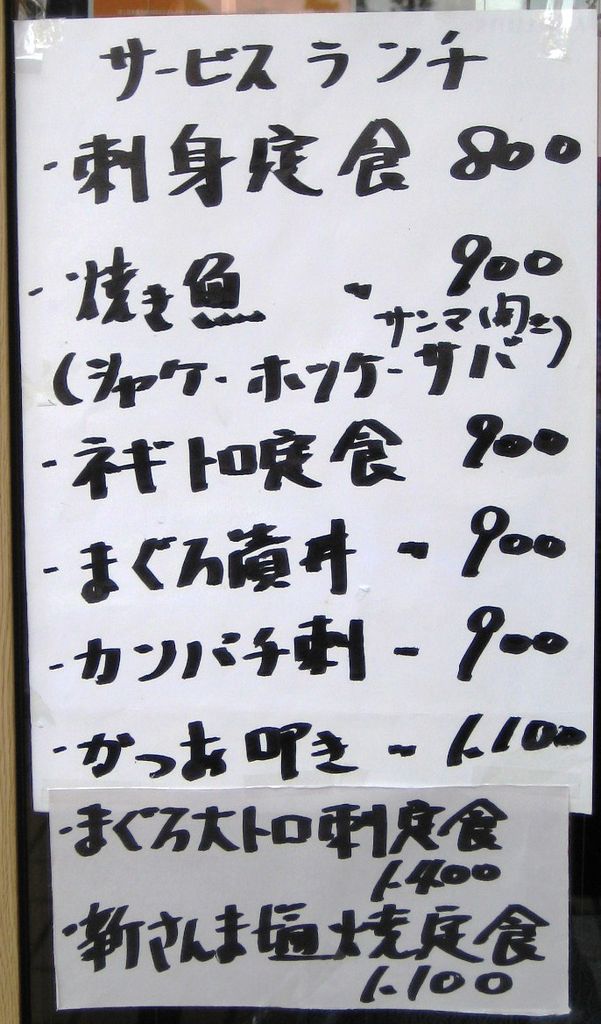 サービスランチ
・刺身定食 800
・焼き魚 - 900
サンマ(開き)
(シャケ・ホッケ・サバ
・ネギトロ定食 900
・まぐろ漬丼 - 900
・カンパチ刺 - 900
・かつお叩き - 1.100
・まぐろ大トロ刺定食
1.400
・新さんま塩焼定食
1.100